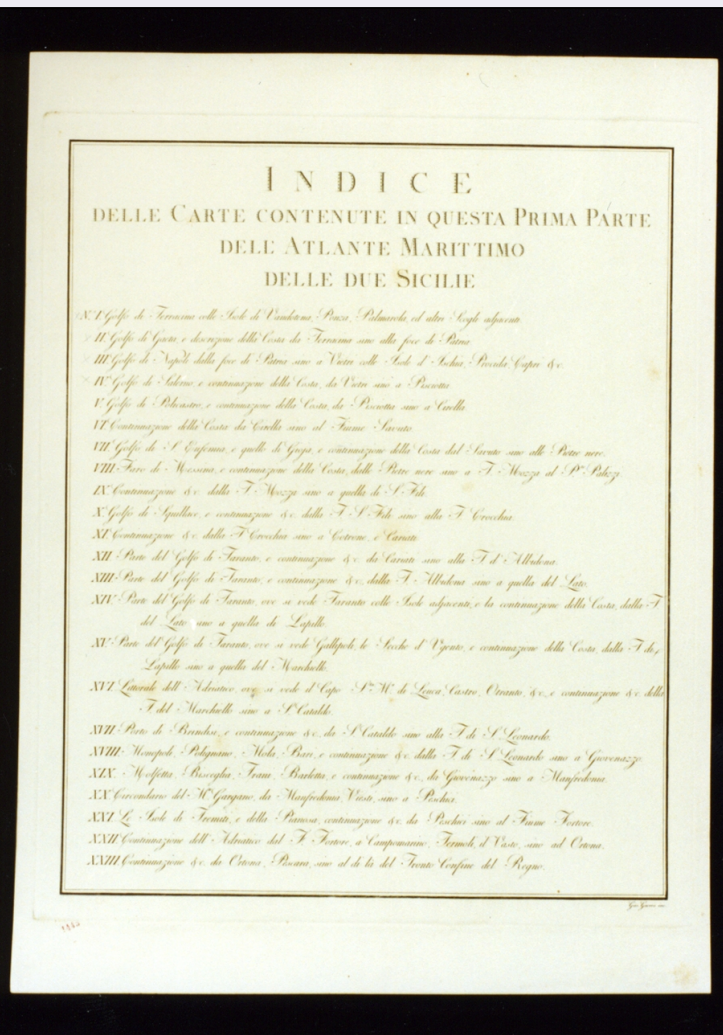 INDICE
DELLE CARTE CONTENUTE IN QUESTA PRIMA PARTE
DELL' ATLANTE MARITTIMO
DELLE DUE SICILIE
N.º I. Golfo di Terracina colle Isole di Vandotena, Ponza, Palmarola, ed altri Scogli adjacenti.
II. Golfo di Gaeta, e descrizione della Costa da Terracina sino alla foce di Patria.
III. Golfo di Napoli dalla foce di Patria sino a Vietri colle Isole d' Ischia, Procida Capri &c.
IV. Golfo di Salerno, e continuazione della Costa, da Vietri sino a Pisciotta.
V. Golfo di Policastro, e continuazione della Costa, da Pisciotta sino a Cirella.
VI. Continuazione della Costa da Cirella sino al Fiume Savuto.
VII. Golfo di S. Eufemia, e quello di Gioja, e continuazione della Costa dal Savuto sino alle Pietre nere.
VIII. Faro di Messina, e continuazione della Costa, dalle Pietre nere sino a T. Mozza al
IX. Continuazione &c. dalla T. Mozza sino a quella di S. Fili.
X. Golfo di Squillace, e continuazione &c. dalla T. S. Fili sino alla T. Crocchia.
XI. Continuazione &c. dalla T. Crocchia sino a Cotrone, e Cariati.
XII. Parte del Golfo di Taranto, e continuazione &c. da Cariati sino alla T. d' Albidona.
XIII. Parte del Golfo di Taranto, e continuazione &c. dalla T. Albidona sino a quella del Lato.
XIV. Parte del Golfo di Taranto, ove si vede Taranto colle Isole adjacenti, e la continuazione della Costa, dalla T.
del Lato sino a quella di Lapillo.
XV. Parte del Golfo di Taranto, ove si vede Gallipoli, le Secche d' Ugento, e continuazione della Costa, dalla T. di
Lapillo sino a quella del Marchiello.
XVI. Littorale dell' Adriatico, ove si vede il Capo S.ta M.a di Leuca, Castro, Otranto, &c., e continuazione &c. dalla
T. del Marchiello sino a S. Cataldo.
XVII. Porto di Brindisi, e continuazione &c. da S. Cataldo sino alla T. di S. Leonardo.
XVIII. Monopoli, Polignano, Mola, Bari, e continuazione &c. dalla T. di S. Leonardo sino a Giovenazzo.
XIX. Molfetta, Bisceglia, Trani, Barletta, e continuazione &c. da Giovenazzo sino a Manfredonia.
XX. Circondario del M.te Gargano, da Manfredonia, Viesti, sino a Peschici.
XXI. Le Isole di Tremiti, e della Pianosa, continuazione &c. da Peschici sino al Fiume Fortore.
XXII. Continuazione dell' Adriatico dal F. Fortore, a Campomarino, Termoli, il Vasto, sino ad Ortona.
XXIII. Continuazione &c. da Ortona, Pescara, sino al di là del Tronto Confine del Regno.